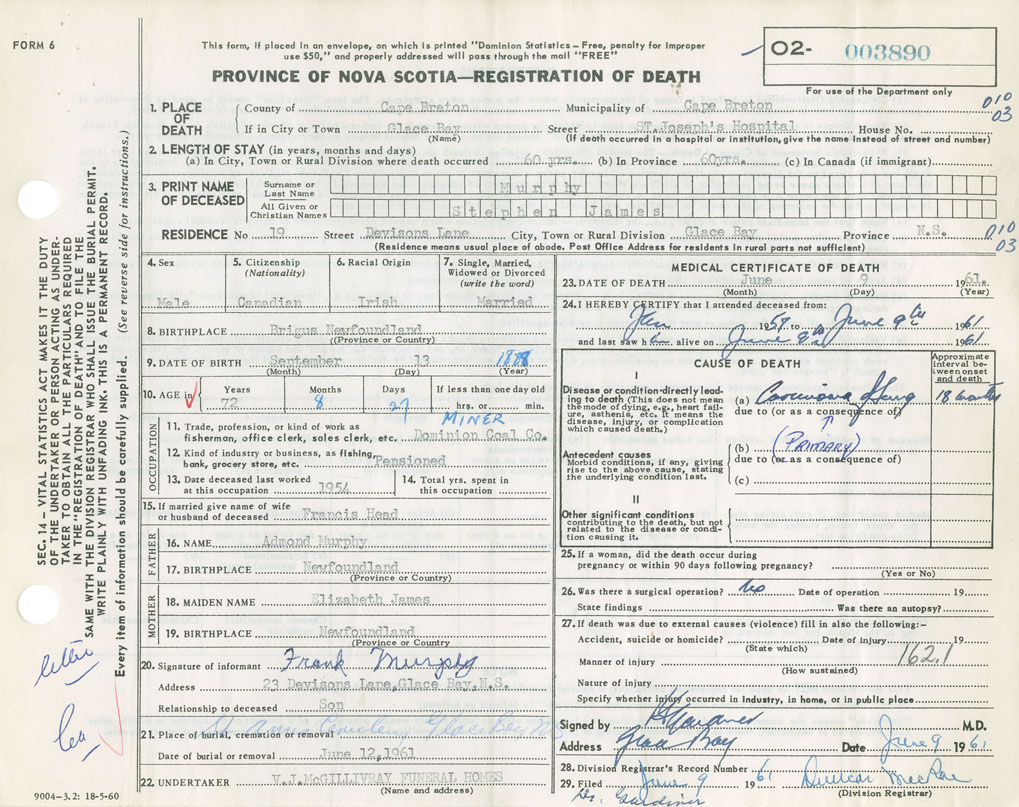 FORM 6
This form, if placed in an envelope, on which is printed "Dominion Statistics – Free, penalty for improper
use $50," and properly addressed will pass through the mail "FREE"
PROVINCE OF NOVA SCOTIA—REGISTRATION OF DEATH
02- 003890
For use of the Department only
010
03
1. PLACE OF DEATH
County of Cape Breton Municipality of Cape Breton
If in City or Town Glace Bay Street ST.Joseph's Hospital House No.
(Name) (If death occurred in a hospital or institution, give the name instead of street and number)
2. LENGTH OF STAY (in years, months and days)
(a) In City, Town or Rural Division where death occurred 60 yrs. (b) In Province 60yrs. (c) In Canada (if immigrant)
3. PRINT NAME OF DECEASED
Surname or Last Name Murphy
All Given or Christian Names Stephen James
RESIDENCE No 19 Street Devisons Lane City, Town or Rural Division Glace Bay Province N.S.
010
03
(Residence means usual place of abode. Post Office Address for residents in rural parts not sufficient)
4. Sex
Male
5. Citizenship
(Nationality)
Canadian
6. Racial Origin
Irish
7. Single, Married,
Widowed or Divorced
(write the word)
Married
8. BIRTHPLACE Brigus Newfoundland
(Province or Country)
9. DATE OF BIRTH September 13 1888
(Month) (Day) (Year)
10. AGE in
Years Months Days If less than one day old
72 8 27 hrs. or min.
OCCUPATION
MINER
11. Trade, profession, or kind of work as
fisherman, office clerk, sales clerk, etc. Dominion Coal Co.
12. Kind of industry or business, as fishing,
bank, grocery store, etc. Pensioned
13. Date deceased last worked
at this occupation 1954
14. Total yrs. spent in
this occupation
15. If married give name of wife
or husband of deceased Francis Head
FATHER
16. NAME Admond Murphy
17. BIRTHPLACE Newfoundland
(Province or Country)
MOTHER
18. MAIDEN NAME Elizabeth James
19. BIRTHPLACE Newfoundland
(Province or Country
20. Signature of informant Frank Murphy
Address 23 Devisons Lane, Glace Bay, N.S.
Relationship to deceased Son
21. Place of burial, cremation or removal St Anns Cemetery Glace Bay NS
Date of burial or removal June 12,1961
22. UNDERTAKER V.J.McGILLIVRAY FUNERAL HOMES
(Name and address)
MEDICAL CERTIFICATE OF DEATH
23. DATE OF DEATH June 9 1961
(Month) (Day) (Year)
24. I HEREBY CERTIFY that I attended deceased from:
Jan 1959 to June 9th 1961
and last saw him alive on June 8th 1961
CAUSE OF DEATH
Approximate interval between onset and death
I
Disease or condition directly leading to death (This does not mean the mode of dying, e.g., heart failure, asthenia, etc. it means the disease, injury, or complication which caused death.)
(a) Carcinoma of Lung 18 months
due to (or as a consequence of)
Antecedent causes
Morbid conditions, if any, giving rise to the above cause, stating the underlying condition last.
(b) (PRIMARY)
due to (or as a consequence of)
(c)
II
Other significant conditions
contributing to the death, but not related to the disease or condition causing it.
25. If a woman, did the death occur during
pregnancy or within 90 days following pregnancy?
(Yes or No)
26. Was there a surgical operation? No Date of operation 19
State findings Was there an autopsy?
27. If death was due to external causes (violence) fill in also the following:-
Accident, suicide or homicide? Date of injury 19
(State which)
162.1
Manner of injury
(How sustained)
Nature of injury
Specify whether injury occurred in industry, in home, or in public place
Signed by H Gardiner M.D.
Address Glace Bay Date June 9 1961
28. Division Registrar's Record Number
29. Filed June 9 1961 Duncan MacRae
(Division Registrar)
Dr. Gardiner
SEC. 14 – VITAL STATISTICS ACT MAKES IT THE DUTY
OF THE UNDERTAKER OR PERSON ACTING AS UNDER-
TAKER TO OBTAIN ALL THE PARTICULARS REQUIRED
IN THE "REGISTRATION OF DEATH" AND TO FILE THE
SAME WITH THE DIVISION REGISTRAR WHO SHALL ISSUE THE BURIAL PERMIT.
WRITE PLAINLY WITH UNFADING INK. THIS IS A PERMANENT RECORD.
Every item of information should be carefully supplied. (See reverse side for instructions.)
9004-3.2: 18-5-60